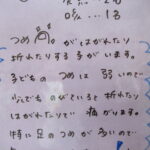 …2名
咳…1名
つめ が はがれたり
折れたりする子がいます。
子どもの つめは 弱いので
少しでも のびていると 折れたり
はがれたりで 痛がります。
特に足のつめが多いので